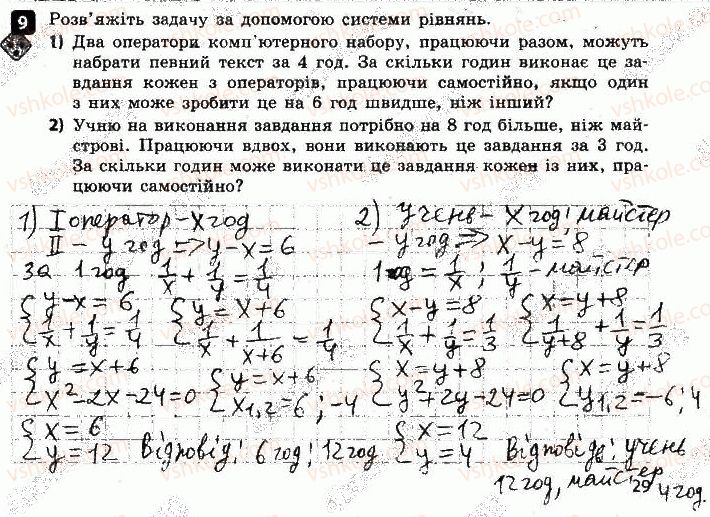 9 Розв'яжіть задачу за допомогою системи рівнянь.
1) Два оператори комп'ютерного набору, працюючи разом, можуть
набрати певний текст за 4 год. За скільки годин виконає це за-
вдання кожен з операторів, працюючи самостійно, якщо один
з них може зробити це на 6 год швидше, ніж інший?
2) Учню на виконання завдання потрібно на 8 год більше, ніж май-
строві. Працюючи вдвох, вони виконають це завдання за 3 год.
За скільки годин може виконати це завдання кожен із них, пра-
цюючи самостійно?
1) I оператор - x год
II - y год => y - x = 6
за 1 год 1/x + 1/y = 1/4
{ y - x = 6 { y = x + 6
{ 1/x + 1/y = 1/4 { 1/x + 1/(x+6) = 1/4
{ y = x + 6 { y = x + 6
{ x² - 2x - 24 = 0 { x1,2 = 6; -4
{ x = 6
{ y = 12 Відповідь: 6 год; 12 год
2) учень - x год; майстер
- y год => x - y = 8
1 год = 1/x; 1/y - майстер
{ x - y = 8 { x = y + 8
{ 1/x + 1/y = 1/3 { 1/(y+8) + 1/y = 1/3
{ x = y + 8 { x = y + 8
{ y² + 2y - 24 = 0 { y1,2 = -6; 4
{ x = 12
{ y = 4 Відповідь: учень
12 год, майстер
4 год.
29
vshkole.com